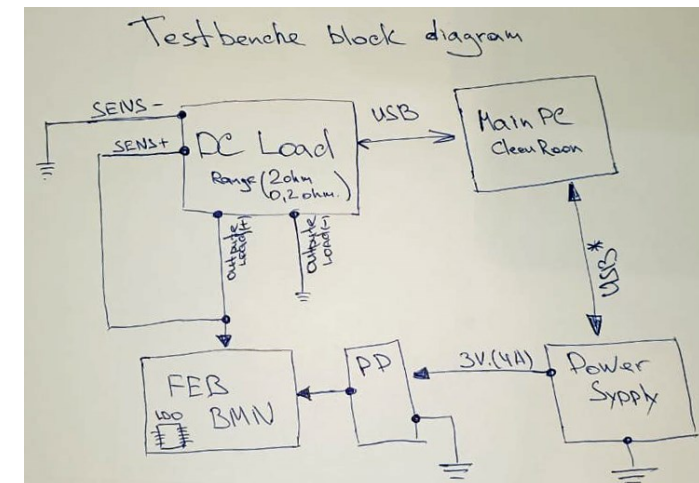 Testbenche block diagram
SENS-
SENS+
DC Load
Range (2ohm
0,2 ohm.)
USB
Main PC
Clean Room
output
Load(+)
output
Load(-)
USB*
FEB
BMN
LDO
PP
3V.(4A)
Power
Sypply